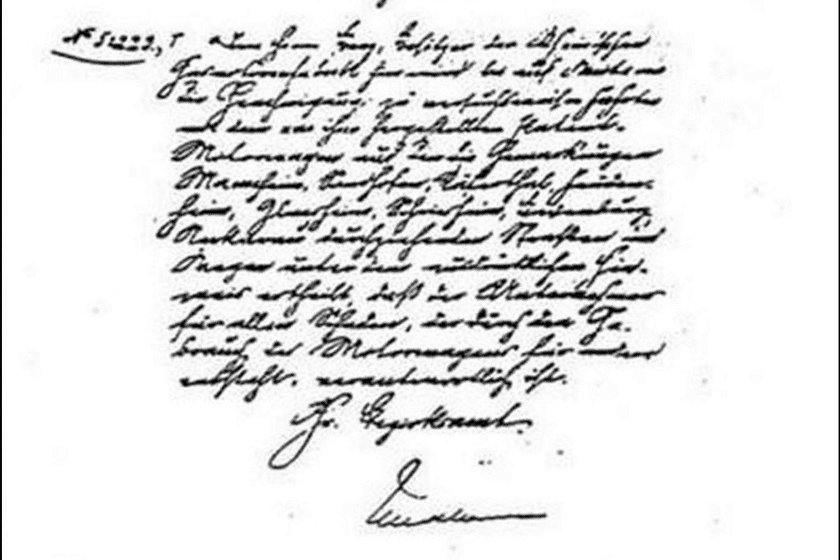 Nº 51222, I Dem Herrn Benz, Besitzer der Rheinischen
Gasmotorenfabrik hier wird bis auf Weiteres
die Genehmigung zu versuchsweisen Fahrten
mit dem von ihm hergestellten Patent-
Motorwagen auf den die Gemarkungen
Mannheim, Sandhofen, Käferthal, Feuden-
heim, Ilvesheim, Schriesheim, Ladenburg
Neckarau durchziehenden Straßen und
Wegen unter dem ausdrücklichen Hin-
weis ertheilt, daß der Unternehmer
für allen Schaden, der durch den Ge-
brauch des Motorwagens für andere
entsteht, verantwortlich ist.
Gr. Bezirksamt.